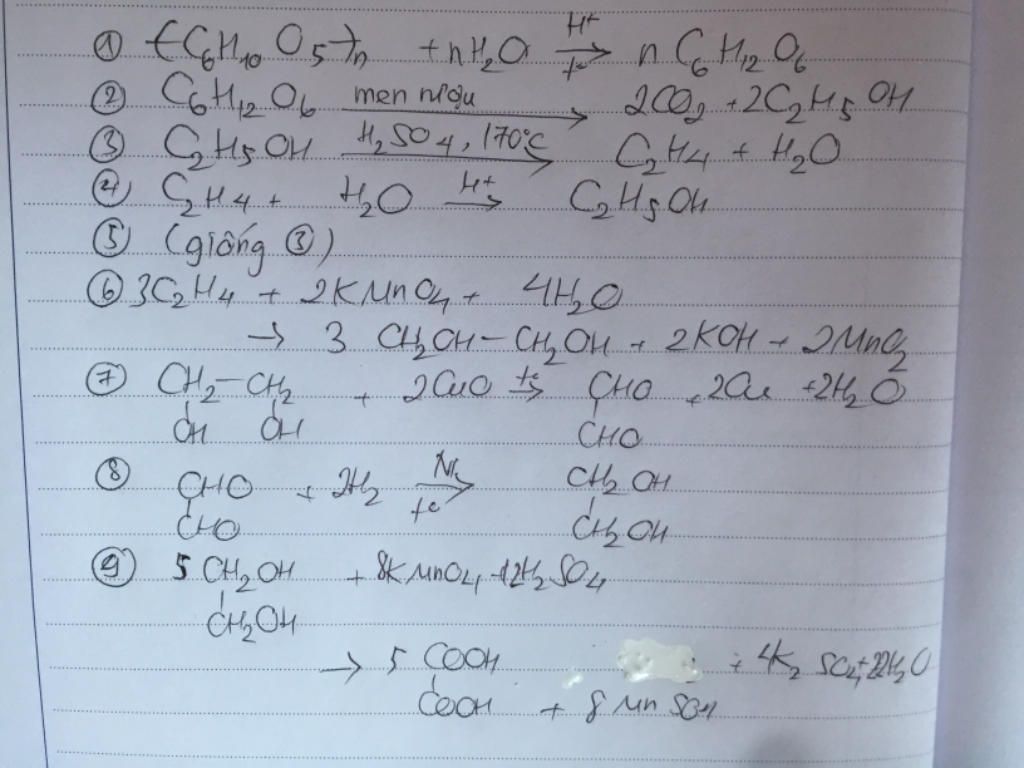 ① (C₆H₁₀O₅)n + nH₂O —H⁺, t°→ nC₆H₁₂O₆
② C₆H₁₂O₆ —men rượu→ 2CO₂ + 2C₂H₅OH
③ C₂H₅OH —H₂SO₄, 170°C→ C₂H₄ + H₂O
④ C₂H₄ + H₂O —H⁺→ C₂H₅OH
⑤ (giống ③)
⑥ 3C₂H₄ + 2KMnO₄ + 4H₂O
→ 3 CH₂OH–CH₂OH + 2KOH + 2MnO₂
⑦ CH₂–CH₂ + 2CuO —t°→ CHO + 2Cu + 2H₂O
OH OH CHO
⑧ CHO + 2H₂ —Ni, t°→ CH₂OH
CHO CH₂OH
⑨ 5 CH₂OH + 8KMnO₄ + 12H₂SO₄
CH₂OH
→ 5 COOH + 4K₂SO₄ + 22H₂O
COOH + 8MnSO₄